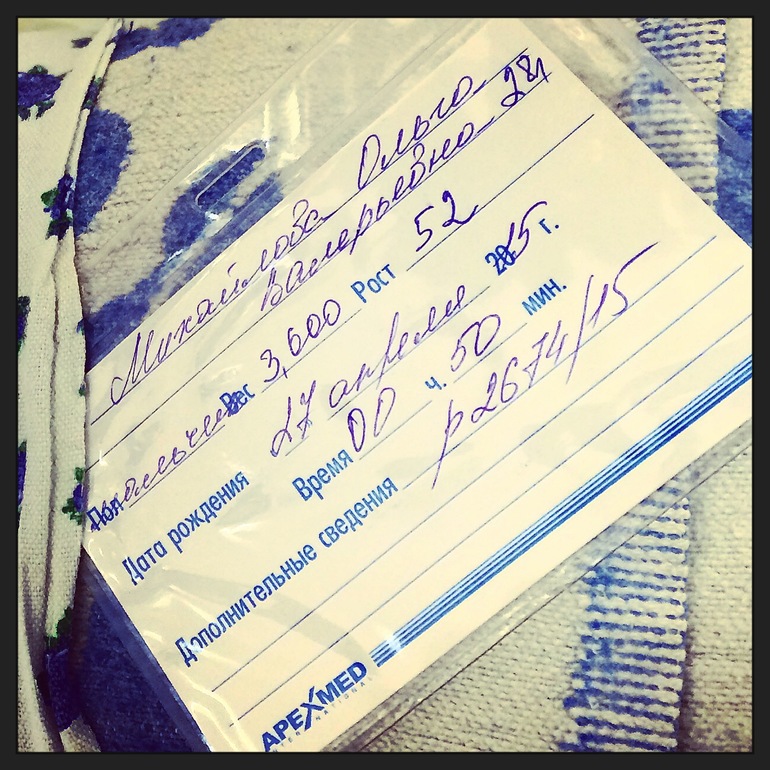 Михайлова Ольга
Валерьевна 28л
Пол мальчик Вес 3,600 Рост 52
Дата рождения 27 апреля 2015 г.
Время 00 ч. 50 мин.
Дополнительные сведения р2674/15
APEXMED
INTERNATIONAL